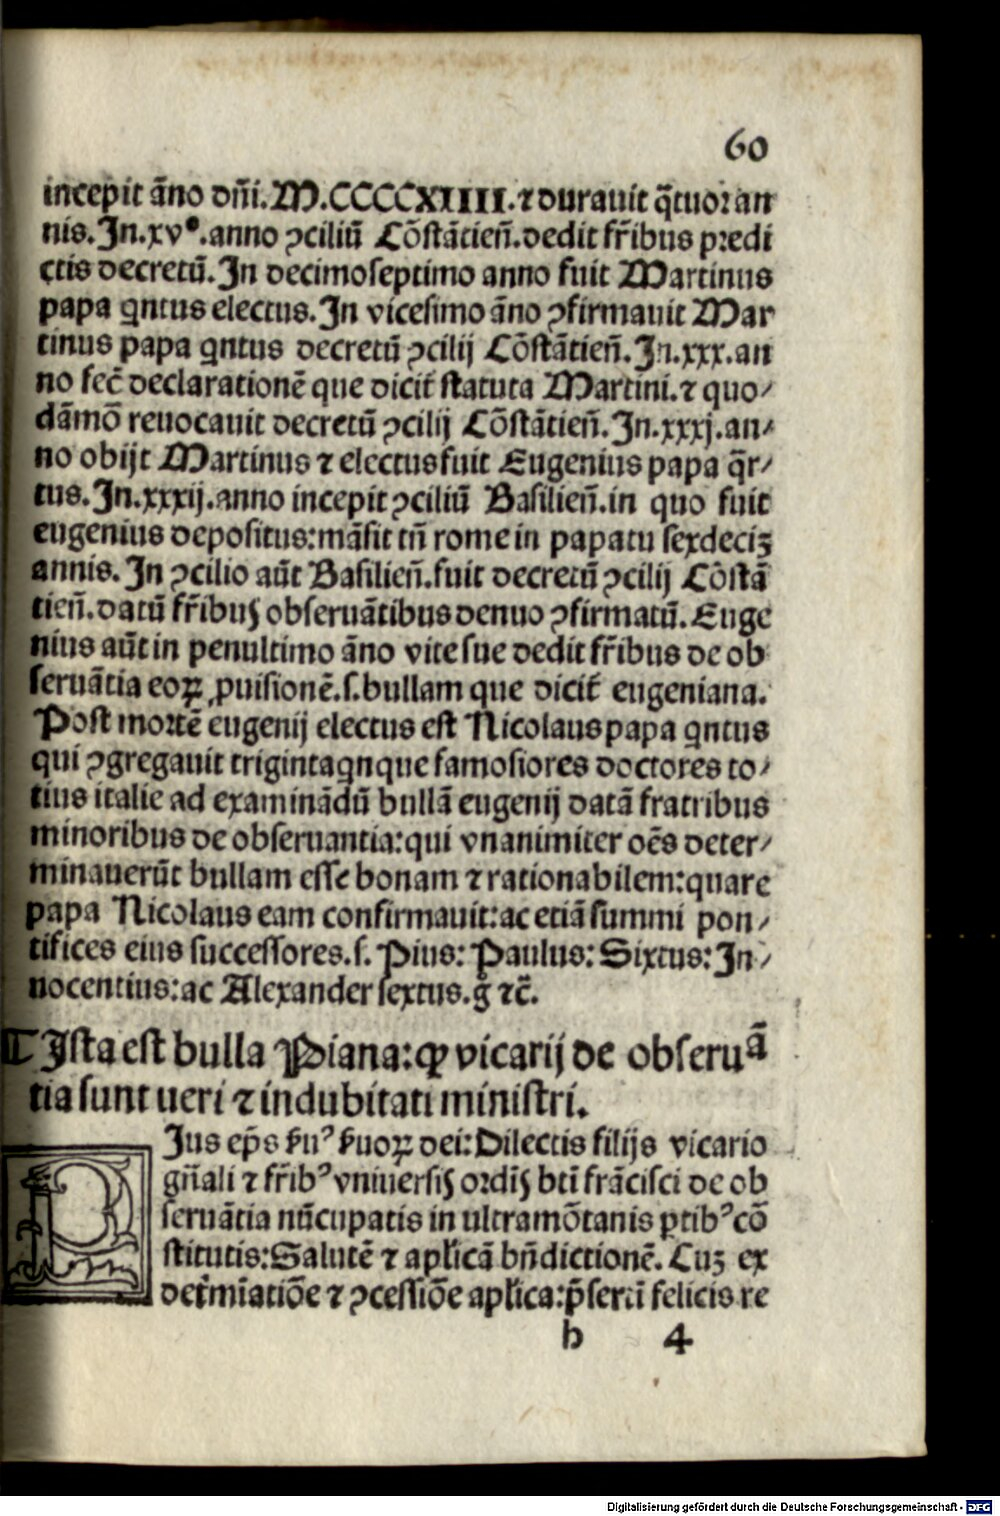 60
incepit āno dn̄i. M.CCCCXIIII. ⁊ durauit q̄tuor an
nis. In .xvº. anno ꝯciliū Cōstātien̄. dedit fr̄ibus predi
ctis decretū. In decimoseptimo anno fuit Martinus
papa qntus electus. In vicesimo āno ꝯfirmauit Mar
tinus papa qntus decretū ꝯcilij Cōstātien̄. In .xxx. an
no fec̄ declarationē que dicit̄ statuta Martini. ⁊ quo⸗
dāmō reuocauit decretū ꝯcilij Cōstātien̄. In .xxxj. an⸗
no obijt Martinus ⁊ electus fuit Eugenius papa q̄r⸗
tus. In .xxxij. anno incepit ꝯciliū Basilien̄. in quo fuit
eugenius depositus: māsit tn̄ rome in papatu sexdeciꝫ
annis. In ꝯcilio aūt Basilien̄. fuit decretū ꝯcilij Cōstā
tien̄. datū fr̄ibuſ obseruātibus denuo ꝯfirmatū. Euge
nius aūt in penultimo āno vite sue dedit fr̄ibus de ob
seruātia eoꝝ ꝓuisionē. s. bullam que dicit̄ eugeniana.
Post mortē eugenij electus est Nicolaus papa qntus
qui ꝯgregauit trigintaqnque famosiores doctores to⸗
tius italie ad examinādū bullā eugenij datā fratribus
minoribus de obseruantia: qui vnanimiter oēs deter⸗
minauerūt bullam esse bonam ⁊ rationabilem: quare
papa Nicolaus eam confirmauit: ac etiā summi pon⸗
tifices eius successores. s. Pius: Paulus: Sixtus: In⸗
nocentius: ac Alexander sextus. g̊ ⁊c̄.
¶ Ista est bulla Piana: ꝙ vicarij de obseruā
tia sunt ueri ⁊ indubitati ministri.
PIus ep̄s ẜuꝰ ẜuoꝝ dei: Dilectis filijs vicario
gn̄ali ⁊ fr̄ibꝰ vniuersiſ ordīſ bt̄i frācisci de ob
seruātia nūcupatis in ultramōtanis ꝑtibꝰ cō
stitutis: Salutē ⁊ apl̄icā bn̄dictionē. Cuꝫ ex
det̄mīatiōe ⁊ ꝯcessiōe apl̄ica: p̄sertī felicis re
h 4
Digitalisierung gefördert durch die Deutsche Forschungsgemeinschaft - DFG